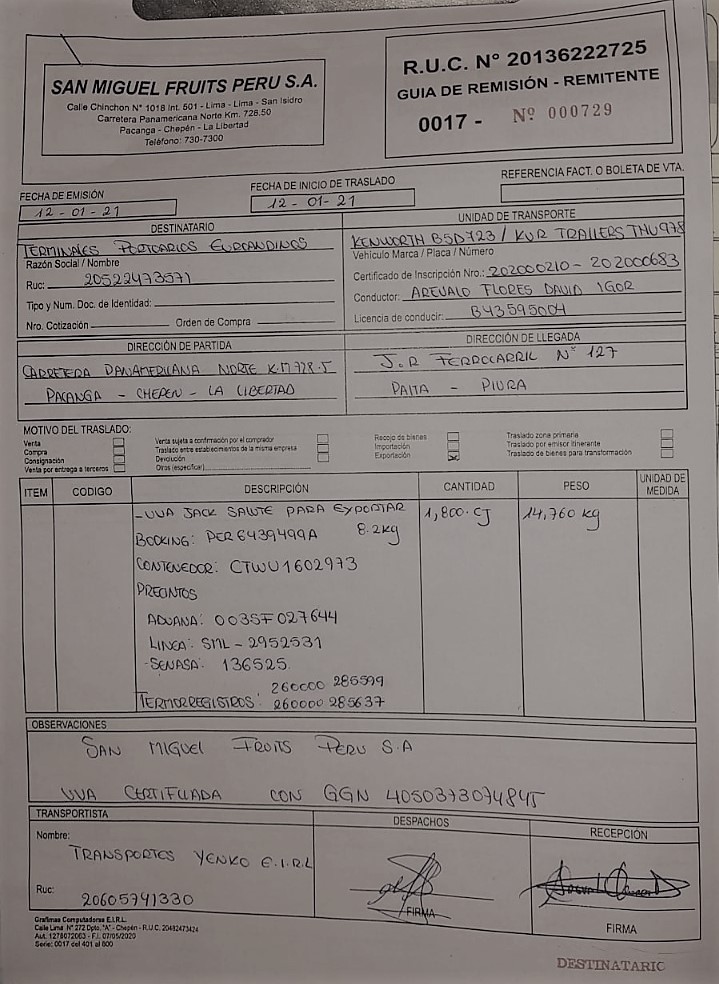 SAN MIGUEL FRUITS PERU S.A.
Calle Chinchon N° 1018 Int. 501 - Lima - Lima - San Isidro
Carretera Panamericana Norte Km. 728.50
Pacanga - Chepén - La Libertad
Teléfono: 730-7300
R.U.C. N° 20136222725
GUIA DE REMISIÓN - REMITENTE
0017 - Nº 000729
FECHA DE EMISIÓN
12-01-21
FECHA DE INICIO DE TRASLADO
12-01-21
REFERENCIA FACT. O BOLETA DE VTA.
DESTINATARIO
TERMINALES PORTUARIOS EUROANDINOS
Razón Social / Nombre
Ruc: 20522473571
Tipo y Num. Doc. de Identidad:
Nro. Cotización Orden de Compra
UNIDAD DE TRANSPORTE
KENWORTH B5D723 / KUR TRAILERS THU978
Vehículo Marca / Placa / Número
Certificado de Inscripción Nro.: 202000210 - 202000683
Conductor: AREVALO FLORES DAVID IGOR
Licencia de conducir: B43595004
DIRECCIÓN DE PARTIDA
CARRETERA PANAMERICANA NORTE K.M 728.5
PACANGA - CHEPEN - LA LIBERTAD
DIRECCIÓN DE LLEGADA
J.R FERROCARRIL N° 127
PAITA - PIURA
MOTIVO DEL TRASLADO:
Venta
Compra
Consignación
Venta por entrega a terceros
Venta sujeta a confirmación por el comprador
Traslado entre establecimientos de la misma empresa
Devolución
Otros (especificar)
Recojo de bienes
Importación
Exportación
Traslado zona primaria
Traslado por emisor itinerante
Traslado de bienes para transformación
ITEM CODIGO DESCRIPCIÓN CANTIDAD PESO UNIDAD DE MEDIDA
- UVA JACK SALUTE PARA EXPORTAR 1,800.CJ 14,760 kg
BOOKING: PER6439499A 8.2kg
CONTENEDOR: CTWU1602973
PRECINTOS
ADUANA: 0035F027644
LINEA: SML - 2952531
- SENASA: 136525
260000 285599
TERMORREGISTROS: 260000 285637
OBSERVACIONES
SAN MIGUEL FRUITS PERU S.A
UVA CERTIFICADA CON GGN 4050373074845
TRANSPORTISTA
Nombre:
TRANSPORTES YENKO E.I.R.L
Ruc: 20605741330
DESPACHOS
FIRMA
RECEPCIÓN
FIRMA
Grafimas Computadoras E.I.R.L.
Calle Lima N° 272 Dpto. "A" - Chepén - R.U.C. 20482473424
Aut. 1278072063 - F.I. 07/05/2020
Serie: 0017 del 401 al 800
DESTINATARIO